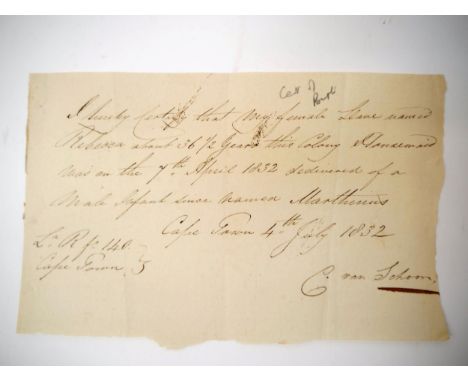 Cert of
I hereby certify that my female Slave named
Rebecca about 36 1/2 Years this Colony Housemaid
was on the 7th April 1832 delivered of a
Male Infant since named Marthinus
Cape Town 4th July 1832
La. R fo. 140
Cape Town
C. van Schoor